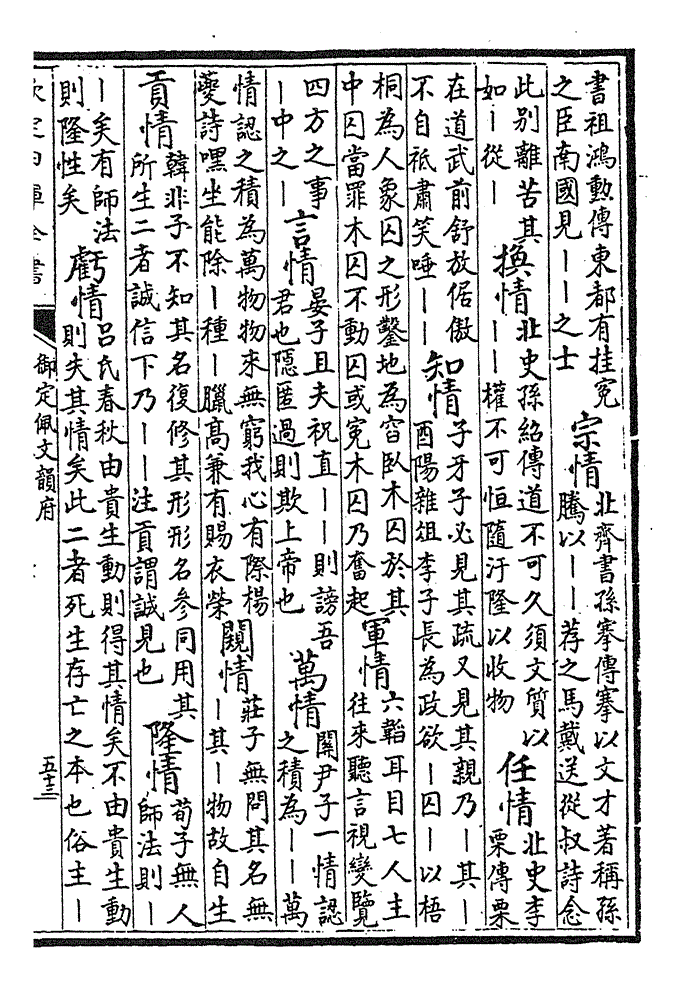 書祖鴻勲傳東都有挂冕
之臣南國見||之士
宗情
北齊書孫搴傳搴以文才著稱孫
騰以||荐之馬戴送從叔詩念
此别離苦其
如|從|
換情
北史孫紹傳道不可久須文質以
||權不可恒隨汙隆以收物
任情
北史李
栗傳栗
在道武前舒放倨傲
不自祗肅笑唾||
知情
子牙子必見其疏又見其親乃|其|
酉陽雜俎李子長為政欲|囚|以梧
桐為人象囚之形鑿地為窞臥木囚於其
中囚當罪木囚不動囚或冤木囚乃奮起
軍情
六韜耳目七人主
往來聽言視變覽
四方之事
|中之|
言情
晏子且夫祝直||則謗吾
君也隱匿過則欺上帝也
萬情
關尹子一情認
之積為||萬
情認之積為萬物物來無窮我心有際楊
夔詩嘿坐能除|種|臘高兼有賜衣榮
闚情
莊子無問其名無
|其|物故自生
貢情
韓非子不知其名復修其形形名參同用其
所生二者誠信下乃||注貢謂誠見也
隆情
荀子無人
師法則|
|矣有師法
則隆性矣
虧情
吕氏春秋由貴生動則得其情矣不由貴生動
則失其情矣此二者死生存亡之本也俗主|
欽定四庫全書
御定佩文韻府
五十三